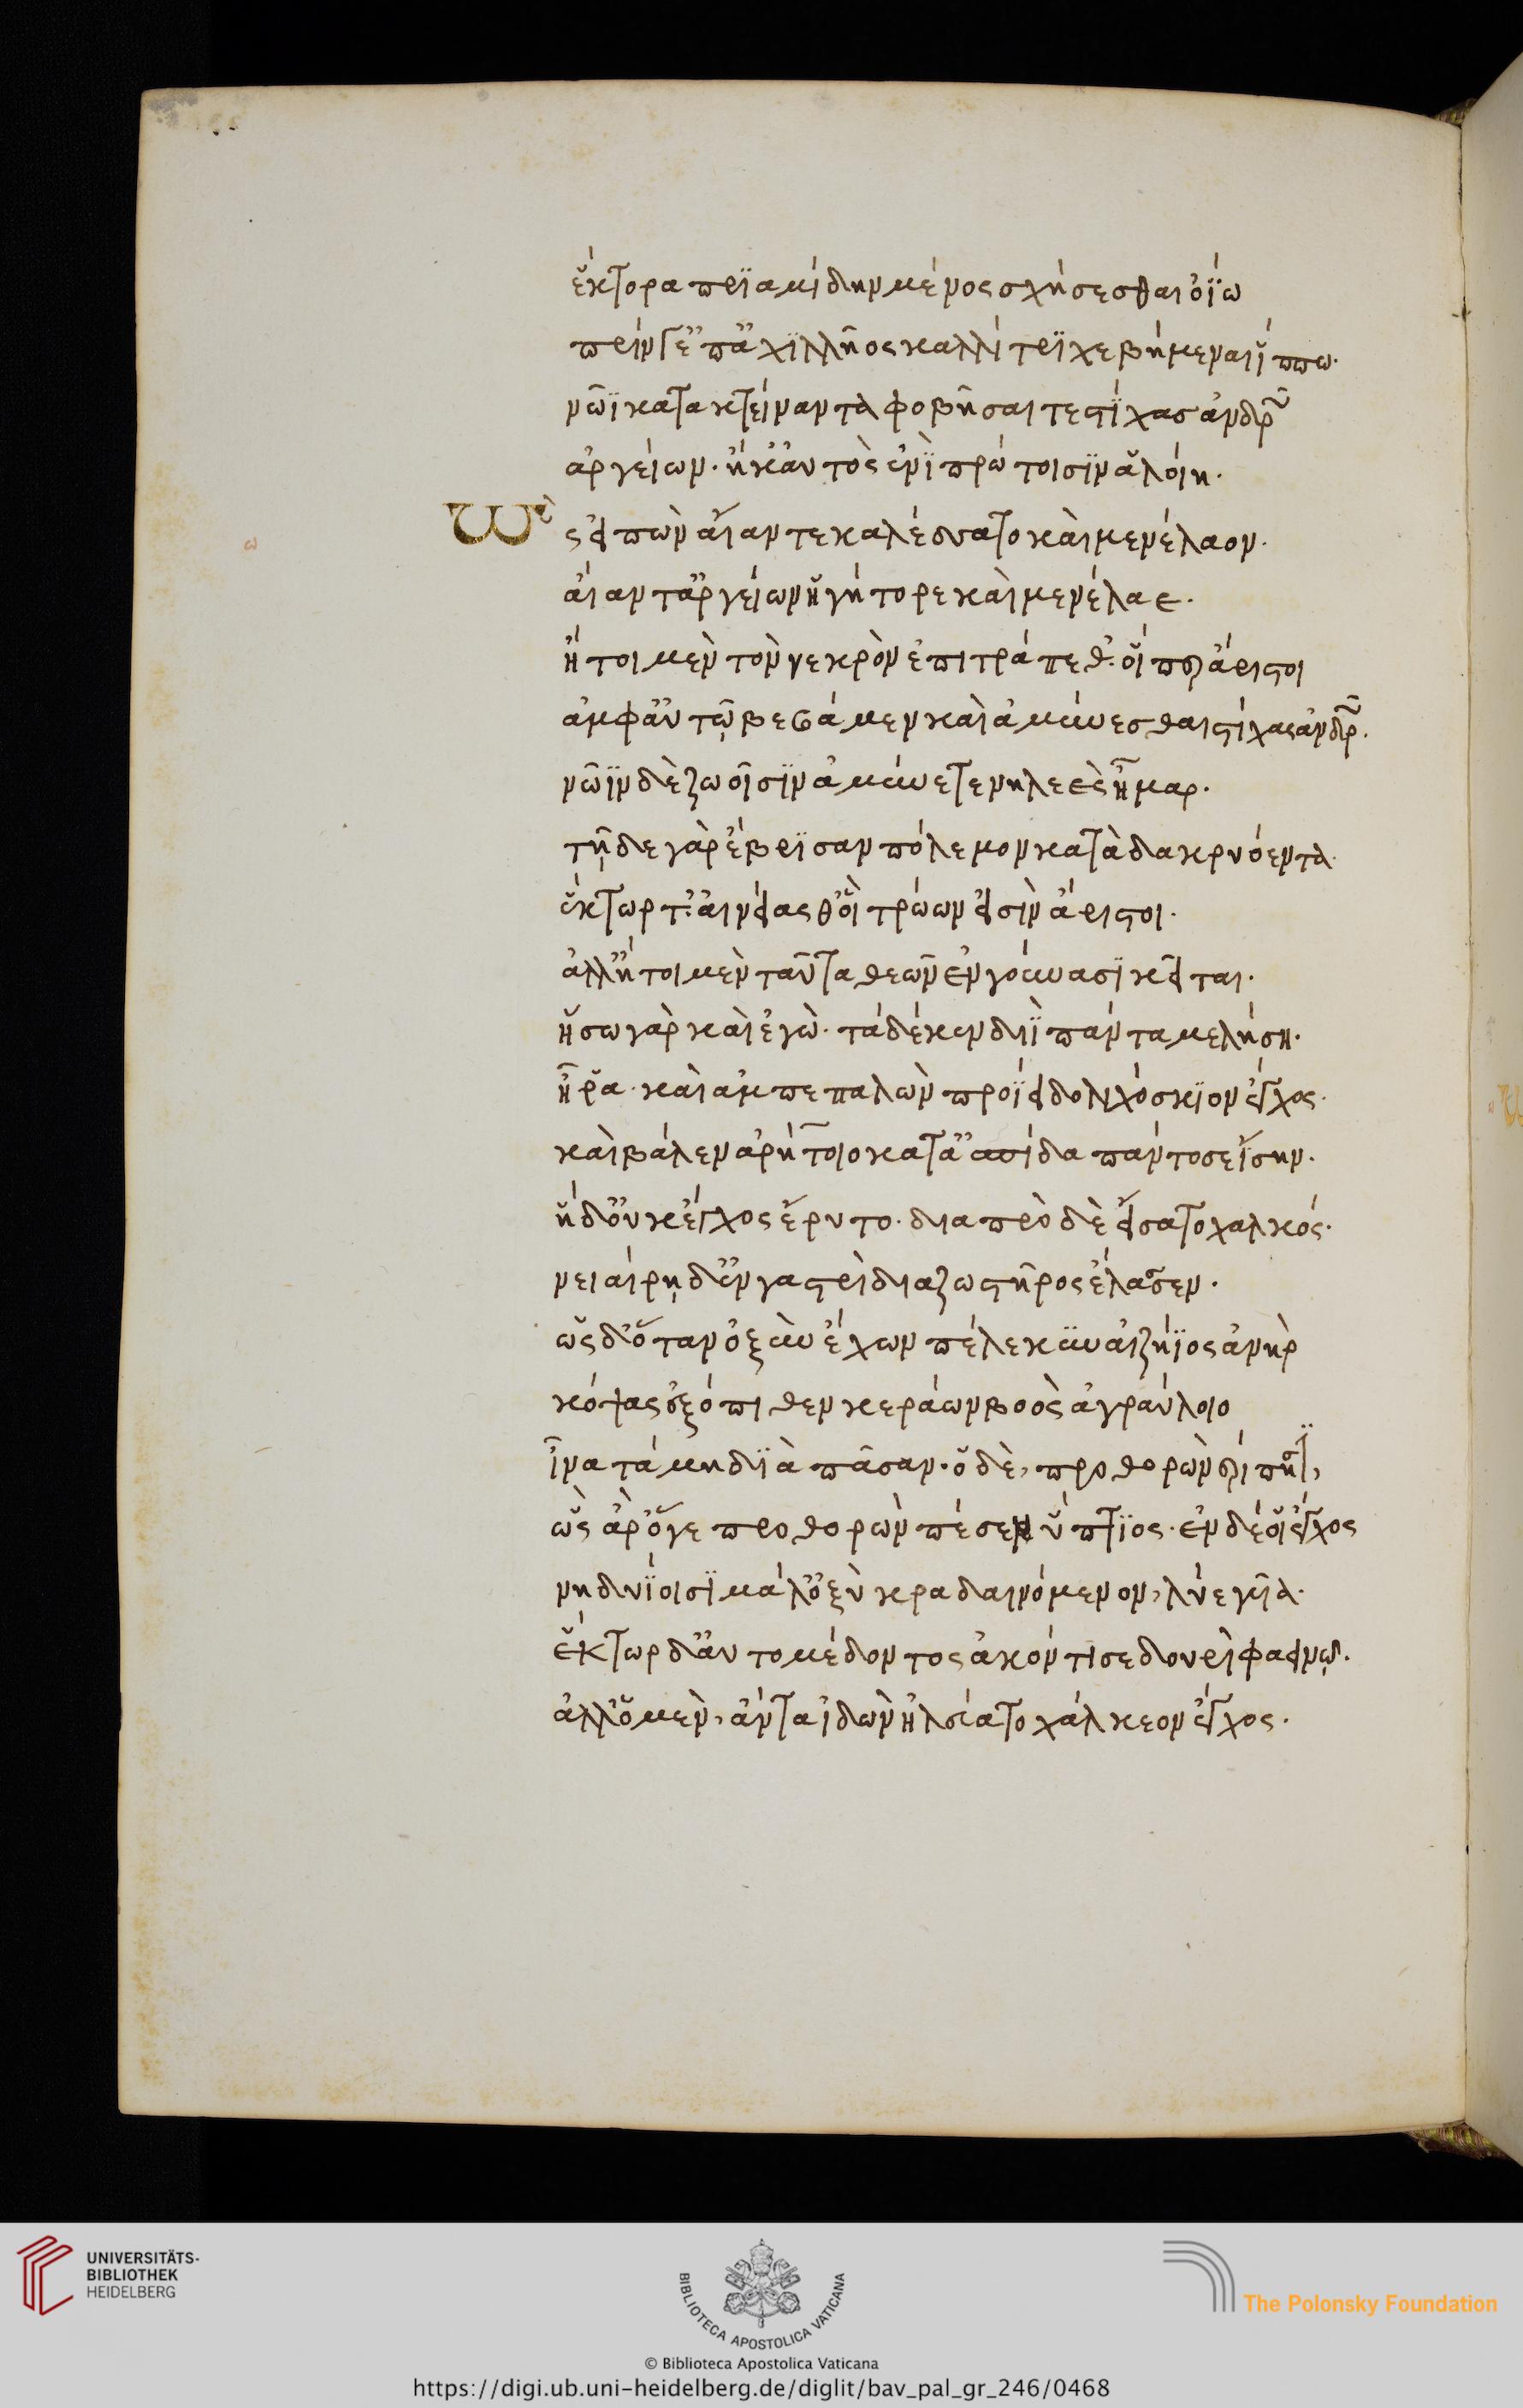 ἕκτορα πριαμίδην μένος σχήσεσθαι ὀΐω
πρίν γ' ἐπ' ἀχιλλῆος καλλίτριχε βήμεναι ἵππω.
νῶϊ κατακτείναντα φοβῆσαί τε στίχας ἀνδρῶν
ἀργείων. ἤ κ' αὐτὸς ἐνὶ πρώτοισιν ἁλοίη.
Ὣς εἰπὼν αἴαντε καλέσσατο καὶ μενέλαον.
αἴαντ' ἀργείων ἡγήτορε καὶ μενέλαε.
ἤτοι μὲν τὸν νεκρὸν ἐπιτράπεθ' οἵπερ ἄριστοι
ἀμφ' αὐτῷ βεβάμεν καὶ ἀμύνεσθαι στίχας ἀνδρῶν.
νῶϊν δὲ ζωοῖσιν ἀμύνετε νηλεὲς ἦμαρ.
τῇδε γὰρ ἔβρισαν πόλεμον κατὰ δακρυόεντα.
ἕκτωρ τ' αἰνείας θ' οἳ τρώων εἰσὶν ἄριστοι.
ἀλλ' ἤτοι μὲν ταῦτα θεῶν ἐν γούνασι κεῖται.
ἥσω γὰρ καὶ ἐγὼ. τὰ δέ κεν διῒ πάντα μελήση.
ἦ ῥα. καὶ ἀμπεπαλὼν προΐει δολιχόσκιον ἔγχος.
καὶ βάλεν ἀρήτοιο κατ' ἀσπίδα πάντοσ' ἐΐσην.
ἡ δ' οὐκ ἔγχος ἔρυτο. διαπρὸ δὲ εἴσατο χαλκός.
νειαίρῃ δ' ἐν γαστρὶ διὰ ζωστῆρος ἔλασσεν.
ὡς δ' ὅταν ὀξὺν ἔχων πέλεκυν αἰζήϊος ἀνὴρ
κόψας ἐξόπιθεν κεράων βοὸς ἀγραύλοιο
ἶνα τάμῃ διὰ πᾶσαν. ὁ δὲ, προθορὼν ἐρίπησι,
ὣς ἄρ' ὅγε προθορὼν πέσεν ὕπτιος. ἐν δέ οἱ ἔγχος
νηδυΐοισι μάλ' ὀξὺ κραδαινόμενον, λύε γυῖα.
ἕκτωρ δ' αὐτομέδοντος ἀκόντισε δουρὶ φαεινῷ.
ἀλλ' ὁ μὲν, ἄντα ἰδὼν ἠλεύατο χάλκεον ἔγχος.
UNIVERSITÄTS-
BIBLIOTHEK
HEIDELBERG
BIBLIOTECA APOSTOLICA VATICANA
The Polonsky Foundation
© Biblioteca Apostolica Vaticana
https://digi.ub.uni-heidelberg.de/diglit/bav_pal_gr_246/0468